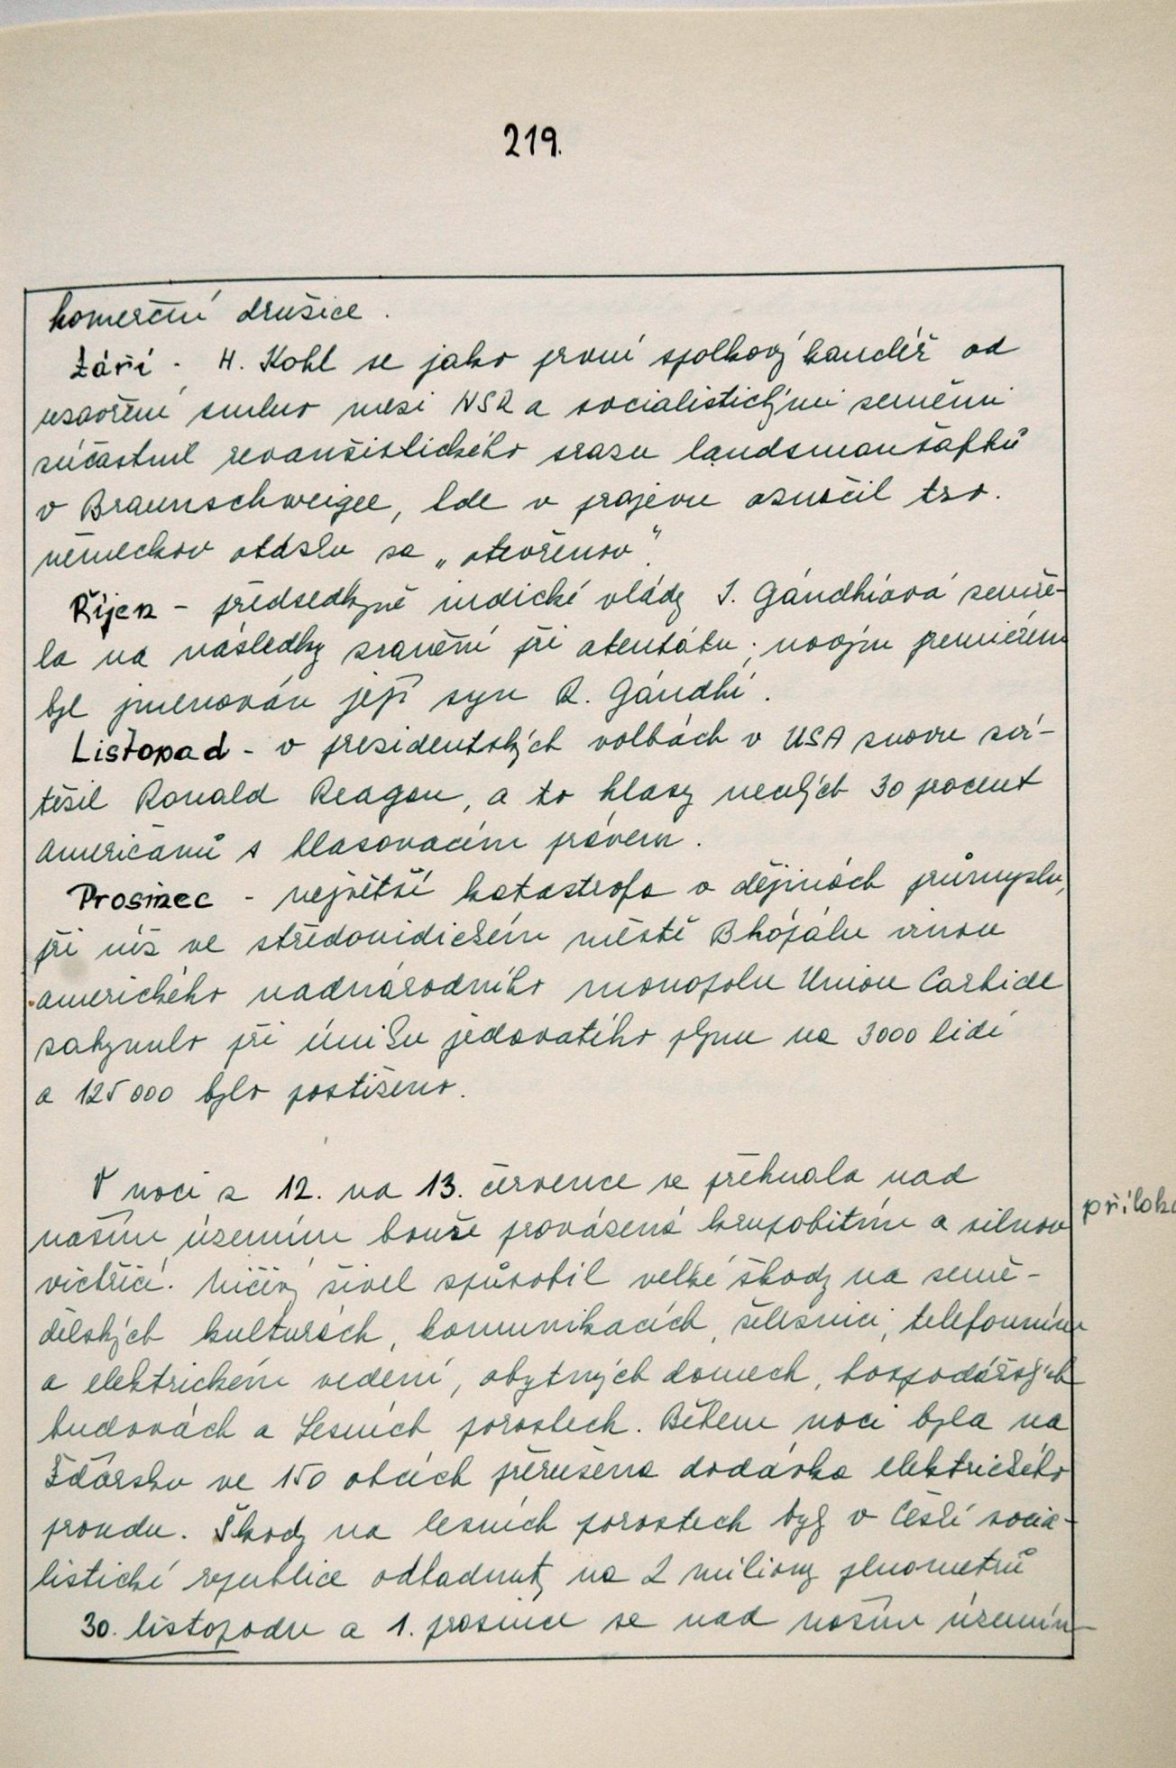 219.
komerční družice.
Září - H. Kohl se jako první spolkový kancléř od
uzavření smluv mezi NSR a socialistickými zeměmi
zúčastnil revanšistického srazu landsmanšaftů
v Braunschweigee, kde v projevu označil tzv.
německou otázku za „otevřenou“.
Říjen - předsedkyně indické vlády I. Gándhíová zemře-
la na následky zranění při atentátu; novým premiérem
byl jmenován její syn R. Gándhí.
Listopad - v presidentských volbách v USA znovu zví-
tězil Ronald Reagan, a to hlasy necelých 30 procent
Američanů s hlasovacím právem.
Prosinec - největší katastrofa v dějinách průmyslu,
při níž ve středoindickém městě Bhópálu vinou
amerického nadnárodního monopolu Union Carbide
zahynulo při úniku jedovatého plynu na 3000 lidí
a 125 000 bylo postiženo.
V noci z 12. na 13. července se přehnala nad
naším územím bouře provázená krupobitím a silnou
vichřicí. Ničivý živel způsobil velké škody na země-
dělských kulturách, komunikacích, železnici, telefonním
a elektrickém vedení, obytných domech, hospodářských
budovách a lesních porostech. Během noci byla na
Žďársku ve 150 obcích přerušena dodávka elektrického
proudu. Škody na lesních porostech byly v České socia-
listické republice odhadnuty na 2 miliony plnometrů
30. listopadu a 1. prosince se nad naším územím
příloha